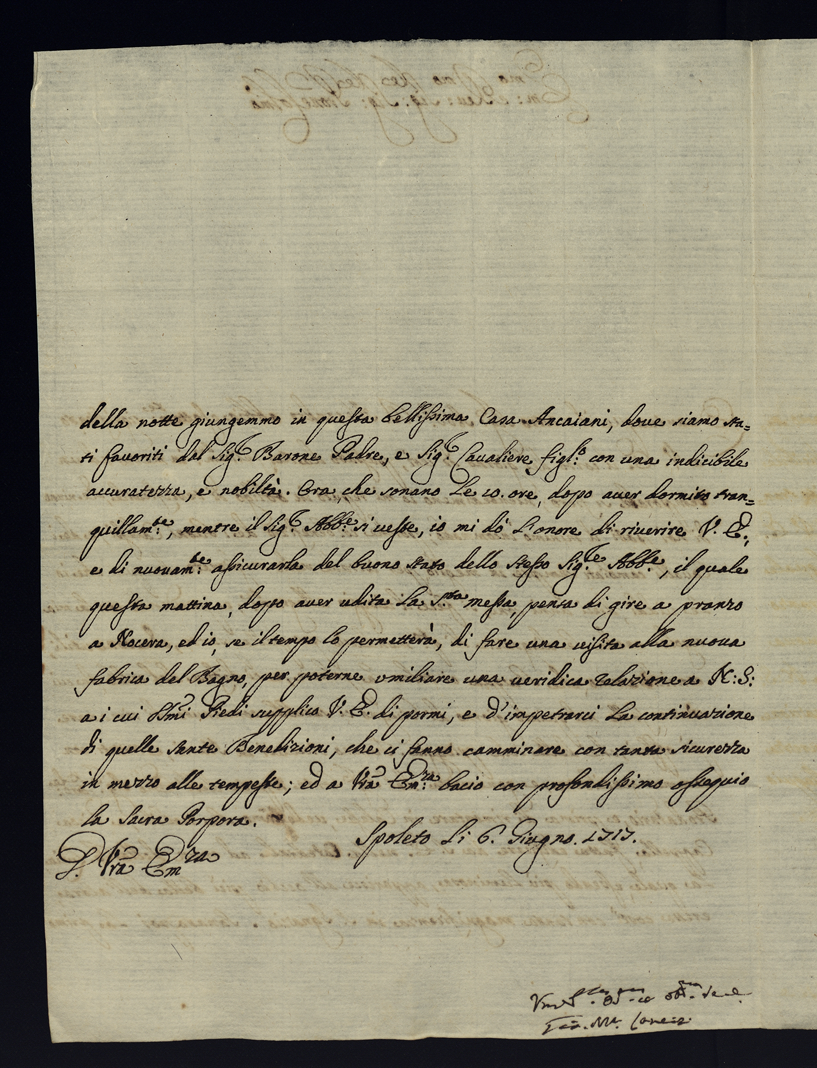 della notte giungemmo in questa bellissima Casa Ancaiani, dove siamo sta=
ti favoriti dal Sig.re Barone Padre, e Sig.re Cavaliere figl.o con una indicibile
accuratezza, e nobiltà. Ora, che sonano le 10. ore, dopo aver dormito tran=
quillam.te, mentre il Sig.re Abb.e si veste, io mi dò l'onore di riverire V. E.,
e di nuovam.te assicurarla del buono stato dello stesso Sig.re Abb.e, il quale
questa mattina, dopo aver udita la S.ta messa, pensa di gire a pranzo
a Nocera, ed io, se il tempo lo permetterà, di fare una visita alla nuova
fabrica del Bagno, per poterne umiliare una veridica relazione a N: S:
a i cui SSmi Piedi supplico V. E. di pormi, e d'impetrarci la continuazione
di quelle sante Benedizioni, che ci fanno camminare con tanta sicurezza
in mezzo alle tempeste; ed a Vra Em.za bacio con profondissimo ossequio
la Sacra Porpora.
Spoleto li 6. Giugno. 1717.
D. Vra Emza